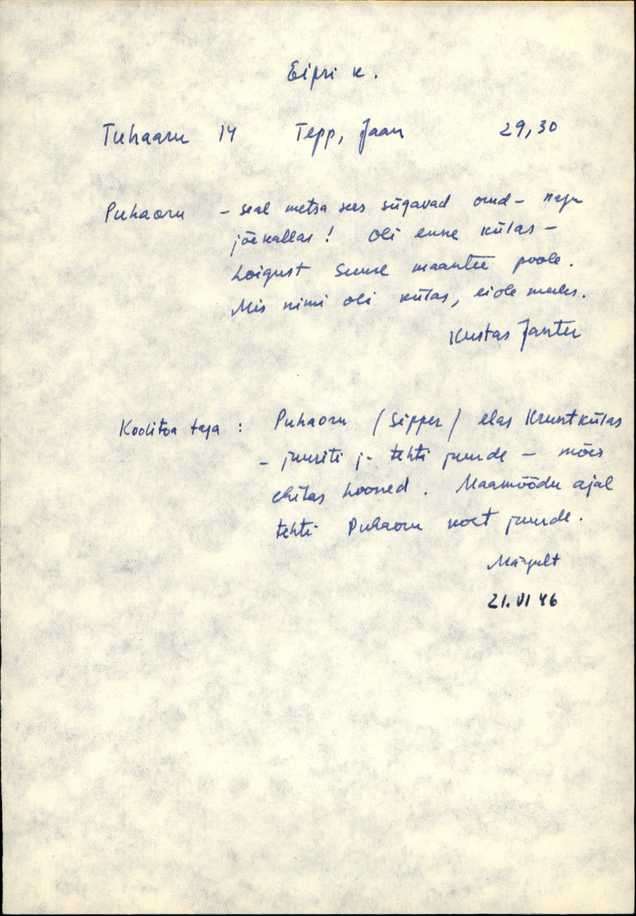 Eipri k.
Tuhaaru 14 Tepp, Jaan 29,30
Puhaoru - seal metsa sees sügavad orud - nagu
jõekallas! Oli enne külas -
Loigust Suure maantee poole.
Mis nimi oli külas, ei ole meeles.
Kustas Janter
Koolitoa taga: Puhaoru (Sipper) elas Kruntkülas
- juuriti ja tehti juurde - mõis
ehitas hooned. Maamõõdu ajal
tehti Puhaoru koht juurde.
21.VI 46